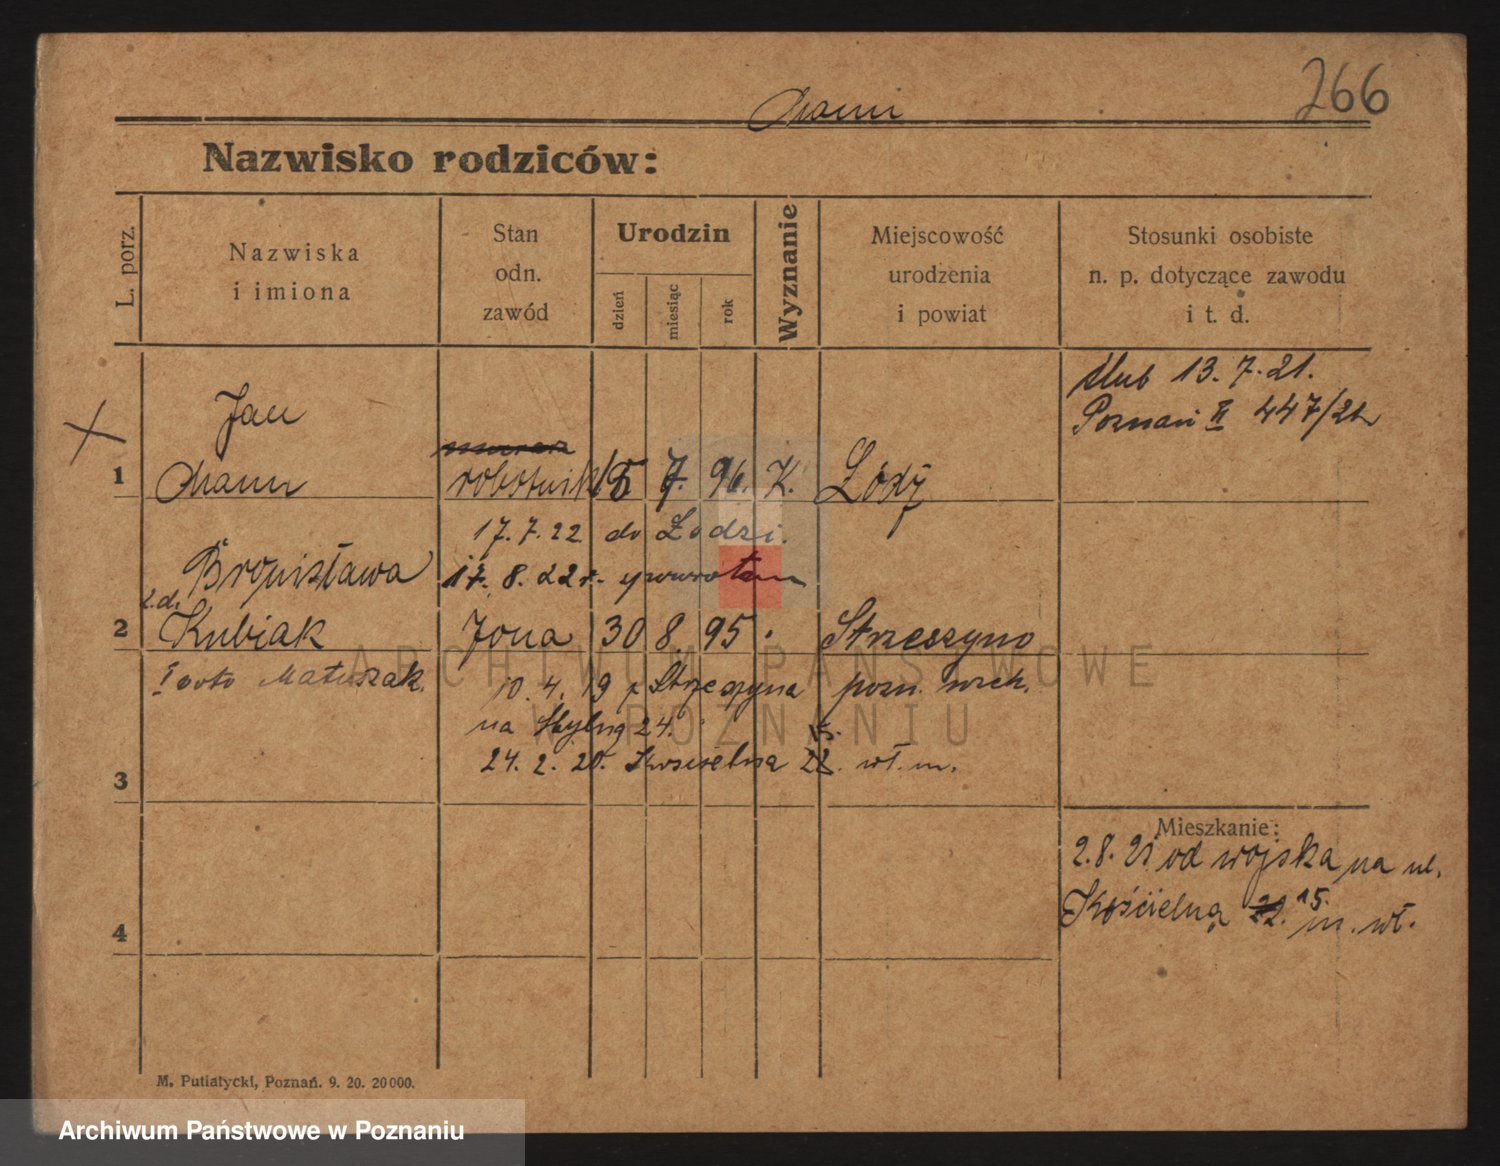 266
Mann
Nazwisko rodziców:
L. porz.
Nazwiska
i imiona
Stan
odn.
zawód
Urodzin
dzień
miesiąc
rok
Wyznanie
Miejscowość
urodzenia
i powiat
Stosunki osobiste
n. p. dotyczące zawodu
i t. d.
ślub 13. 7. 21.
Poznań II 447/21
Jan
1 Mann robotnik 15 7. 96. K. Łódź
17. 7. 22 do Łodzi.
Bronisława 17. 8. 22 r. z powrotem
z.d.
2 Kubiak żona 30 8. 95 Strzeszyno
I voto Matuszak. 10. 4. 19 z Strzeszyna pozn. wsch.
na 24.
15.
24. 2. 20. Kościelna 22. wł. m.
3
Mieszkanie:
2. 8. 21 od wojska na ul.
Kościelną 22. 15. m. wł.
4
M. Putiatycki, Poznań. 9. 20. 20 000.
ARCHIWUM PAŃSTWOWE
W POZNANIU
Archiwum Państwowe w Poznaniu